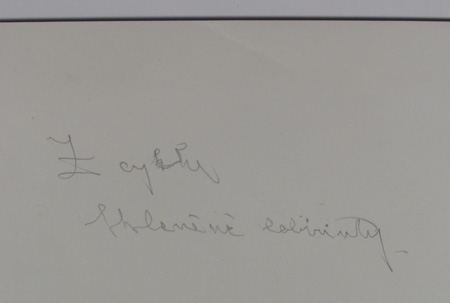 Z cyklu
Skleněné labirinty